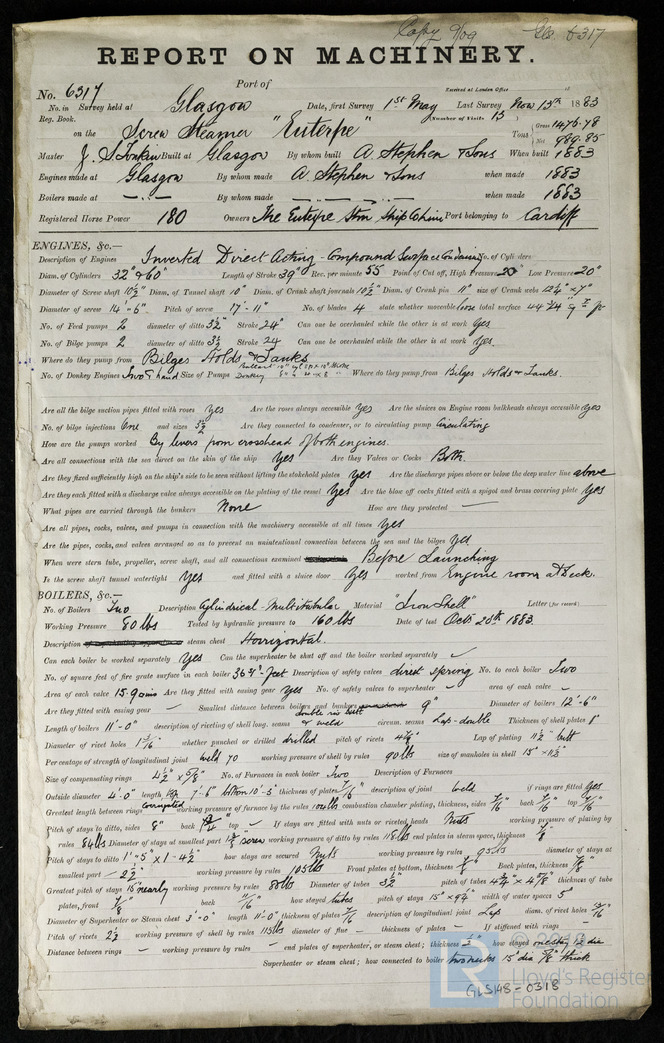 Copy 9/09 Gls. 6317
REPORT ON MACHINERY.
Port of
No. 6317 Received at London Office 18
No. in Survey held at Glasgow Date, first Survey 1st May Last Survey Nov 13th 1883
Reg. Book. (Number of Visits 13
on the Screw Steamer "Euterpe" Tons Gross 1476.78
Net 989.85
Master J. S. Tonkin Built at Glasgow By whom built A. Stephen & Sons When built 1883
Engines made at Glasgow By whom made A. Stephen & Sons when made 1883
Boilers made at — „ — By whom made — „ — when made 1883
Registered Horse Power 180 Owners The Euterpe Stm Ship Coy Limd Port belonging to Cardiff
ENGINES, &c.—
Description of Engines Inverted Direct Acting - Compound Surface Condensing No. of Cylinders
Diam. of Cylinders 32" & 60" Length of Stroke 39" Rev. per minute 55 Point of Cut off, High Pressure 20" Low Pressure 20"
Diameter of Screw shaft 10½" Diam. of Tunnel shaft 10" Diam. of Crank shaft journals 10½" Diam. of Crank pin 11" size of Crank webs 12¼" x 7"
Diameter of screw 14'-6" Pitch of screw 17'-11" No. of blades 4 state whether moveable loose total surface
No. of Feed pumps 2 diameter of ditto 3½" Stroke 24" Can one be overhauled while the other is at work Yes
No. of Bilge pumps 2 diameter of ditto 3½ Stroke 24 Can one be overhauled while the other is at work Yes
Where do they pump from Bilges Holds & Tanks
No. of Donkey Engines Two & hand Size of Pumps Where do they pump from Bilges Holds & Tanks.
Are all the bilge suction pipes fitted with roses Yes Are the roses always accessible Yes Are the sluices on Engine room bulkheads always accessible Yes
No. of bilge injections One and sizes 5½ Are they connected to condenser, or to circulating pump Circulating
How are the pumps worked By levers from crosshead of both engines.
Are all connections with the sea direct on the skin of the ship Yes Are they Valves or Cocks Both.
Are they fixed sufficiently high on the ship's side to be seen without lifting the stokehold plates Yes Are the discharge pipes above or below the deep water line above
Are they each fitted with a discharge valve always accessible on the plating of the vessel Yes Are the blow off cocks fitted with a spigot and brass covering plate Yes
What pipes are carried through the bunkers None How are they protected —
Are all pipes, cocks, valves, and pumps in connection with the machinery accessible at all times Yes
Are the pipes, cocks, and valves arranged so as to prevent an unintentional connection between the sea and the bilges Yes
When were stern tube, propeller, screw shaft, and all connections examined Before Launching
Is the screw shaft tunnel watertight Yes and fitted with a sluice door Yes worked from Engine room & Deck.
BOILERS, &c.—
No. of Boilers Two Description Cylindrical - Multitubular Material "Iron Shell" Letter (for record)
Working Pressure 80 lbs Tested by hydraulic pressure to 160 lbs Date of test Octr 20th 1883.
Description steam chest Horrizontal.
Can each boiler be worked separately Yes Can the superheater be shut off and the boiler worked separately ✓
No. of square feet of fire grate surface in each boiler Description of safety valves direct spring No. to each boiler Two
Area of each valve 15.9 Are they fitted with easing gear Yes No. of safety valves to superheater – area of each valve –
Are they fitted with easing gear – Smallest distance between boilers and bunkers 9" Diameter of boilers 12'-6"
Length of boilers 11'-0" description of riveting of shell long. seams double riv butt & weld circum. seams Lap-double Thickness of shell plates 1"
Diameter of rivet holes 1 3/16" whether punched or drilled drilled pitch of rivets Lap of plating 11½" butt
Percentage of strength of longitudinal joint weld 70 working pressure of shell by rules 90 lbs size of manholes in shell 15" x 11½"
Size of compensating rings 4½" x 5/8" No. of Furnaces in each boiler Two Description of Furnaces
Outside diameter 4'-0" length, top 7'-6" bottom 10'-5" thickness of plates 7/16" description of joint Weld if rings are fitted Yes
Greatest length between rings corrugated working pressure of furnace by the rules combustion chamber plating, thickness, sides 7/16" back 7/16" top 7/16"
Pitch of stays to ditto, sides 8" back top – If stays are fitted with nuts or riveted heads Nuts working pressure of plating by
rules 84 lbs Diameter of stays at smallest part screw working pressure of ditto by rules 118 lbs end plates in steam space, thickness 7/8
Pitch of stays to ditto 1'-5" x 1-4½" how stays are secured Nuts working pressure by rules 95 lbs diameter of stays at
smallest part – 2½" working pressure by rules 105 lbs Front plates at bottom, thickness Back plates, thickness
Greatest pitch of stays 15" nearly working pressure by rules 88 lbs Diameter of tubes 3½ pitch of tubes thickness of tube
plates, front 7/8" back 11/16" how stayed tubes pitch of stays width of water spaces 5"
Diameter of Superheater or Steam chest 3'-0" length 11'-0" thickness of plates 7/16 description of longitudinal joint Lap diam. of rivet holes 13/16"
Pitch of rivets 2½ working pressure of shell by rules 115 lbs diameter of flue – thickness of plates – If stiffened with rings –
Distance between rings – working pressure by rules – end plates of superheater, or steam chest; thickness ½" how stayed
Superheater or steam chest; how connected to boiler two necks 15" dia 5/8" thick
GLSH8-0318
LR
© 2019
Lloyd's Register
Foundation